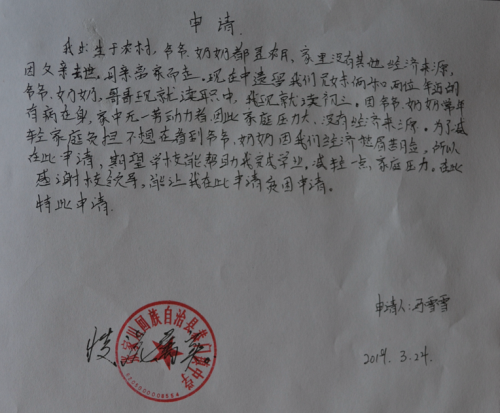 申请
我出生于农村，爷爷、奶奶都是农民，家里没有其他经济来源，
因父亲去世，母亲离家而走。现在中遗留我们兄妹俩和两位年迈的
爷爷、奶奶，哥哥现就读职中，我现就读初三。因爷爷、奶奶常年
有病在身，家中无一劳动力者，因此家庭压力大，没有经济来源。为了减
轻家庭负担，不想在看到爷爷、奶奶因我们经济愁眉苦脸，所以
在此申请，期望学校能帮助我完成学业，减轻一点家庭压力。在此
感谢校领导，能让我在此申请贫困申请。
特此申请。
情况属实
回族自治县 中学
申请人：马雪雪
2014. 3. 24.